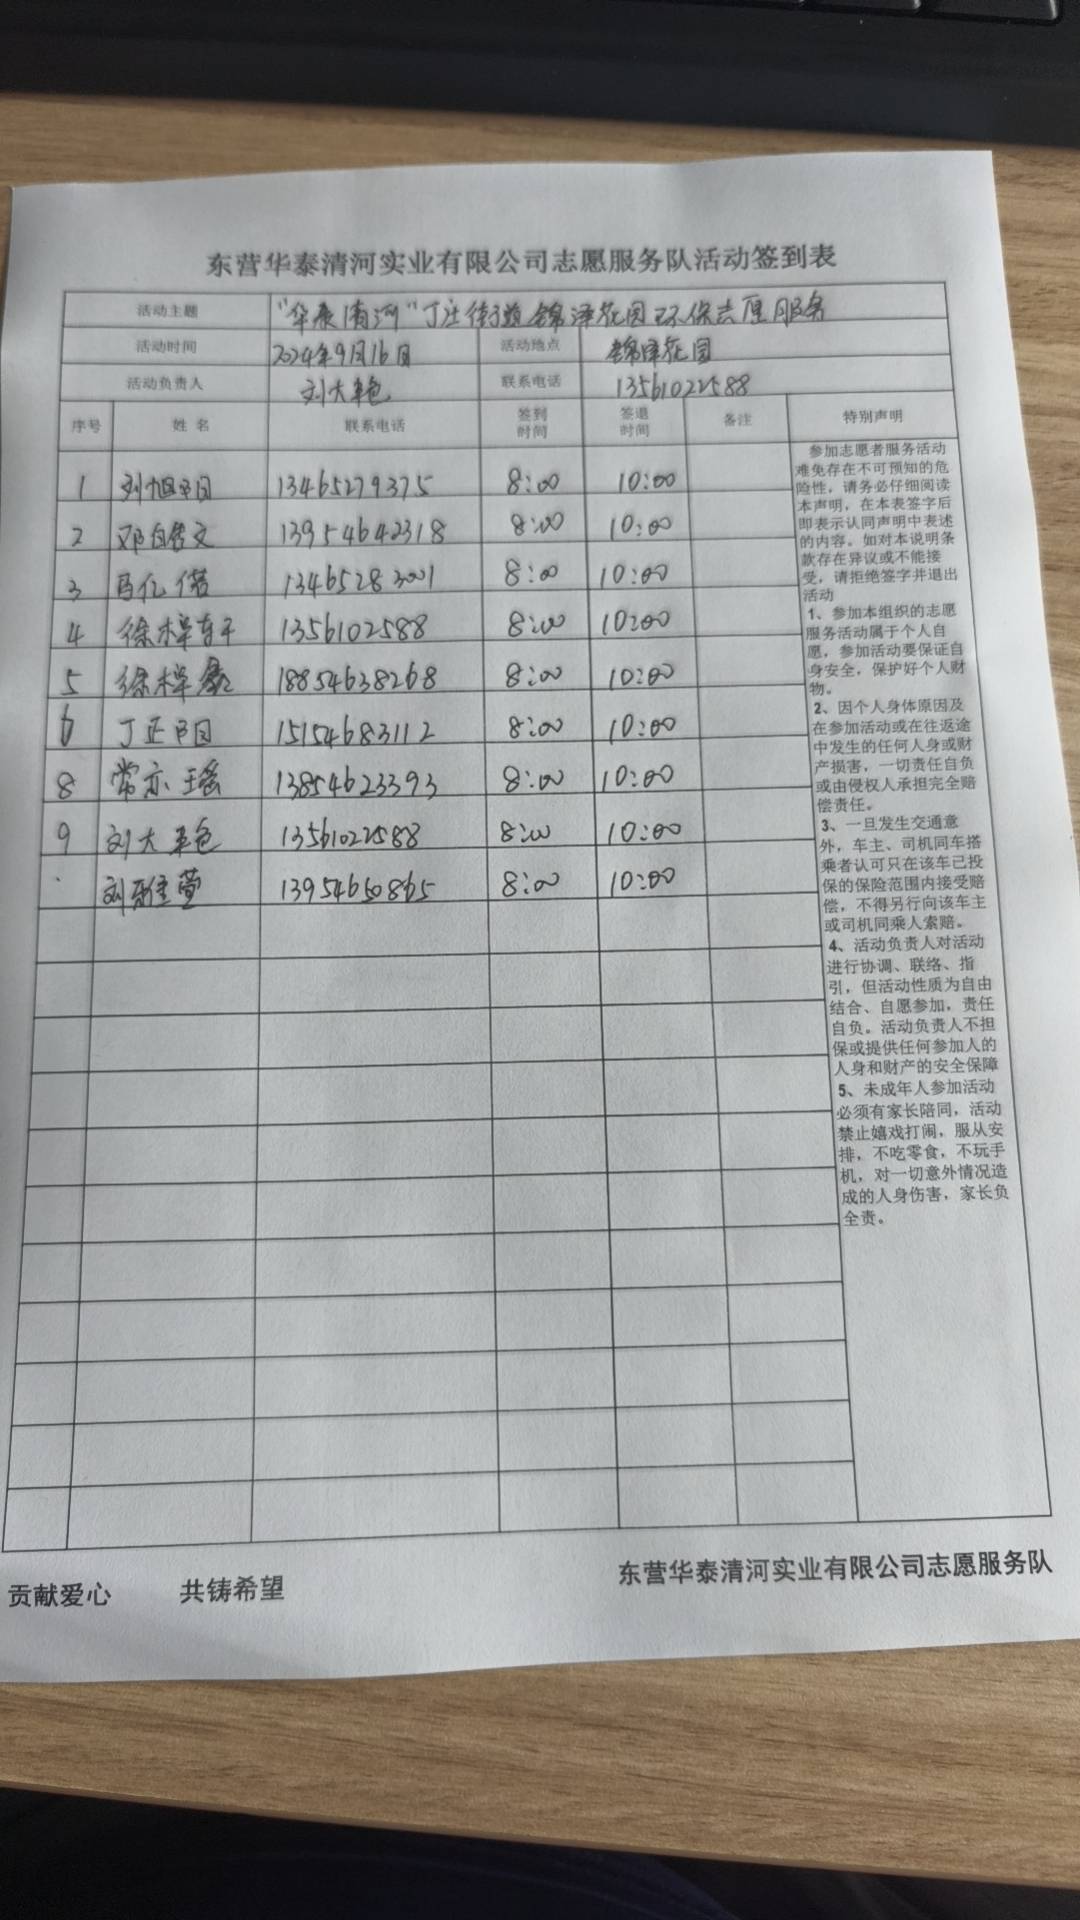 东营华泰清河实业有限公司志愿服务队活动签到表
活动主题 "华泰清河"丁庄街道锦泽花园环保志愿服务
活动时间 2024年9月16日 活动地点 锦泽花园
活动负责人 刘大 联系电话 13561022588
序号 姓名 联系电话 签到时间 签退时间 备注 特别声明
1 刘旭 13465279375 8:00 10:00
2 邓 文 13954642318 8:00 10:00
3 马亿 13465283001 8:00 10:00
4 徐 1356102588 8:00 10:00
5 徐 18854638268 8:00 10:00
6 丁正 15154683112 8:00 10:00
8 常亦瑶 13854623393 8:00 10:00
9 刘大 13561022588 8:00 10:00
刘雅萱 13954650865 8:00 10:00
参加志愿者服务活动
难免存在不可预知的危
险性，请务必仔细阅读
本声明，在本表签字后
即表示认同声明中表述
的内容。如对本说明条
款存在异议或不能接
受，请拒绝签字并退出
活动
1、参加本组织的志愿
服务活动属于个人自
愿，参加活动要保证自
身安全，保护好个人财
物。
2、因个人身体原因及
在参加活动或在往返途
中发生的任何人身或财
产损害，一切责任自负
或由侵权人承担完全赔
偿责任。
3、一旦发生交通意
外，车主、司机同车搭
乘者认可只在该车已投
保的保险范围内接受赔
偿，不得另行向该车主
或司机同乘人索赔。
4、活动负责人对活动
进行协调、联络、指
引，但活动性质为自由
结合、自愿参加，责任
自负。活动负责人不担
保或提供任何参加人的
人身和财产的安全保障
5、未成年人参加活动
必须有家长陪同，活动
禁止嬉戏打闹，服从安
排，不吃零食，不玩手
机，对一切意外情况造
成的人身伤害，家长负
全责。
贡献爱心 共铸希望 东营华泰清河实业有限公司志愿服务队